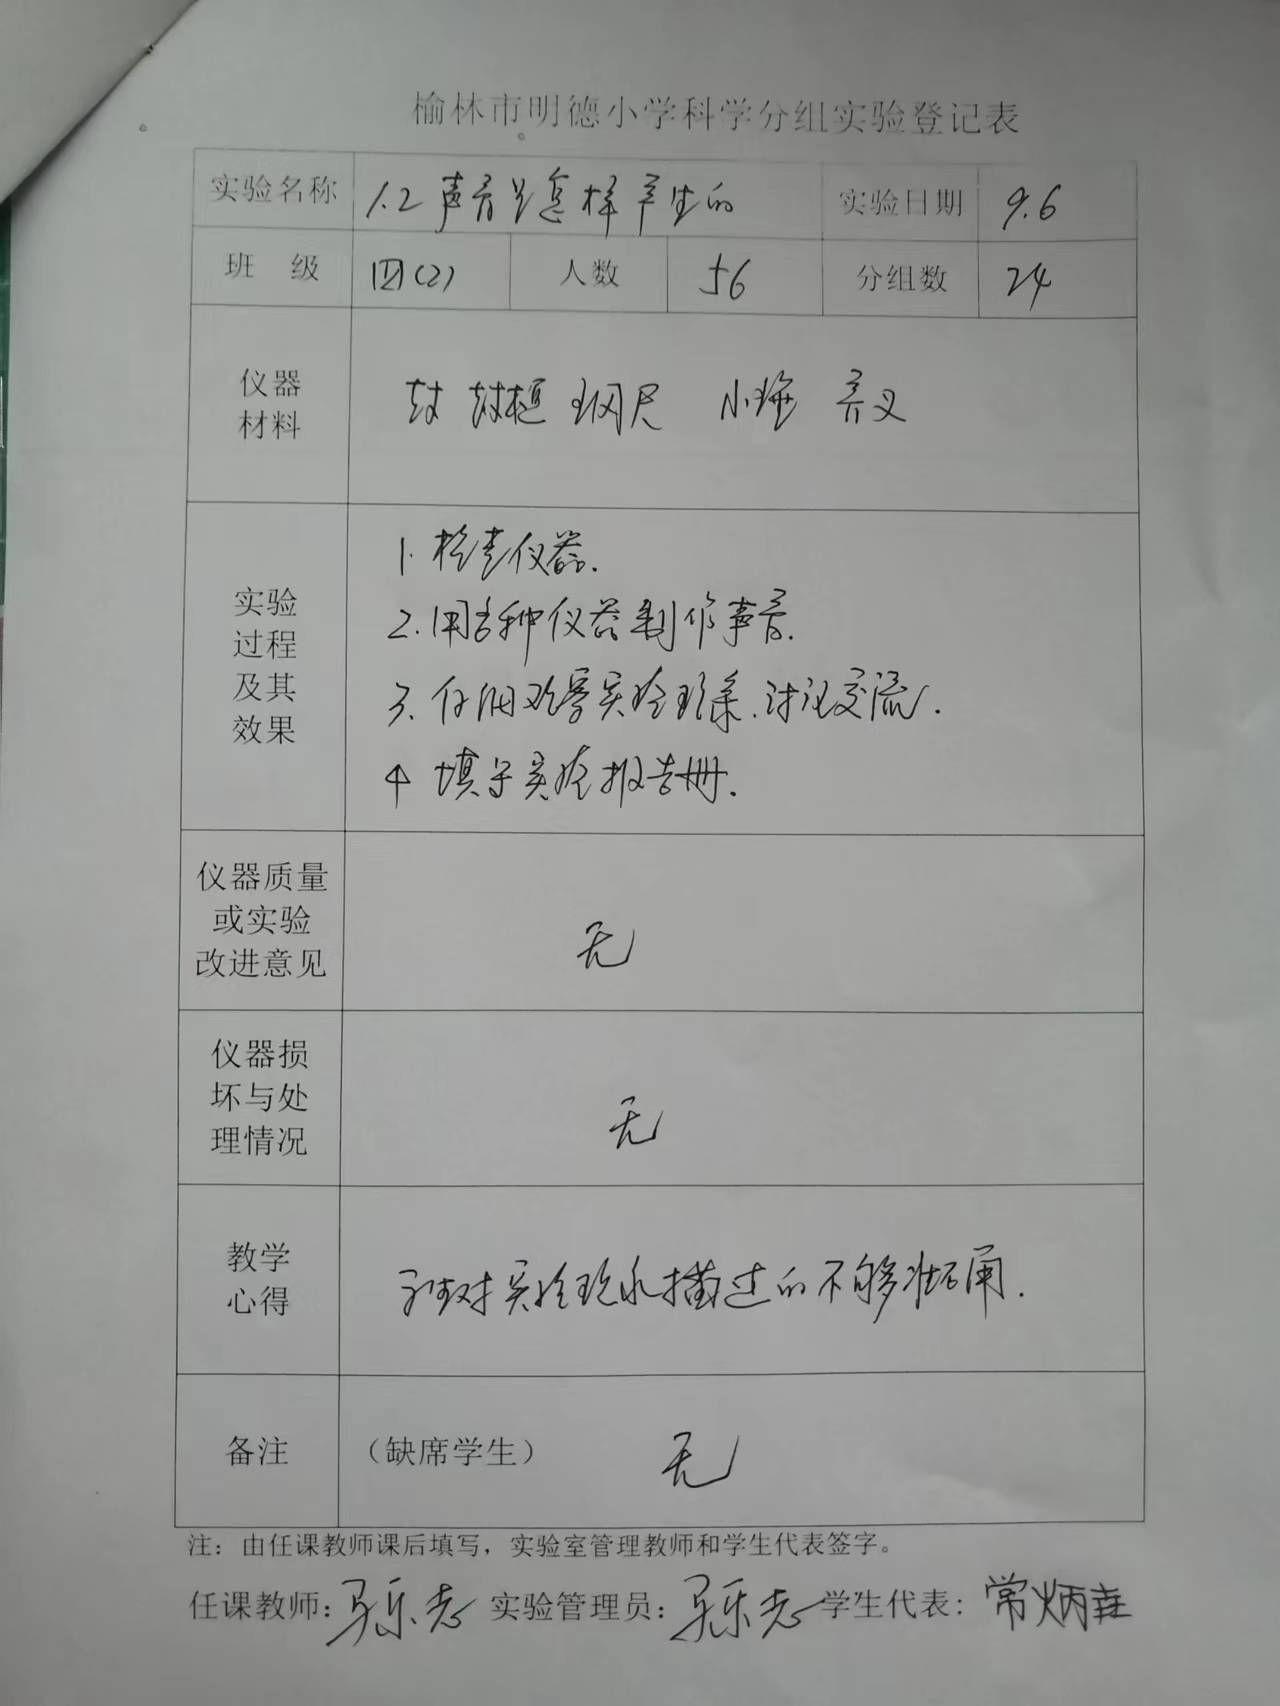 榆林市明德小学科学分组实验登记表
实验名称 1.2声音是怎样产生的 实验日期 9.6
班 级 四(2) 人数 56 分组数 24
仪器
材料
鼓 鼓槌 钢尺 音叉
实验
过程
及其
效果
1.检查仪器.
2.用各种仪器制作声音.
3.仔细观察实验现象.讨论交流.
4 填写实验报告册.
仪器质量
或实验
改进意见
无
仪器损
坏与处
理情况
无
教学
心得
对实验现象描述的不够准确.
备注 （缺席学生） 无
注：由任课教师课后填写，实验室管理教师和学生代表签字。
任课教师：马乐志 实验管理员：马乐志 学生代表：常炳